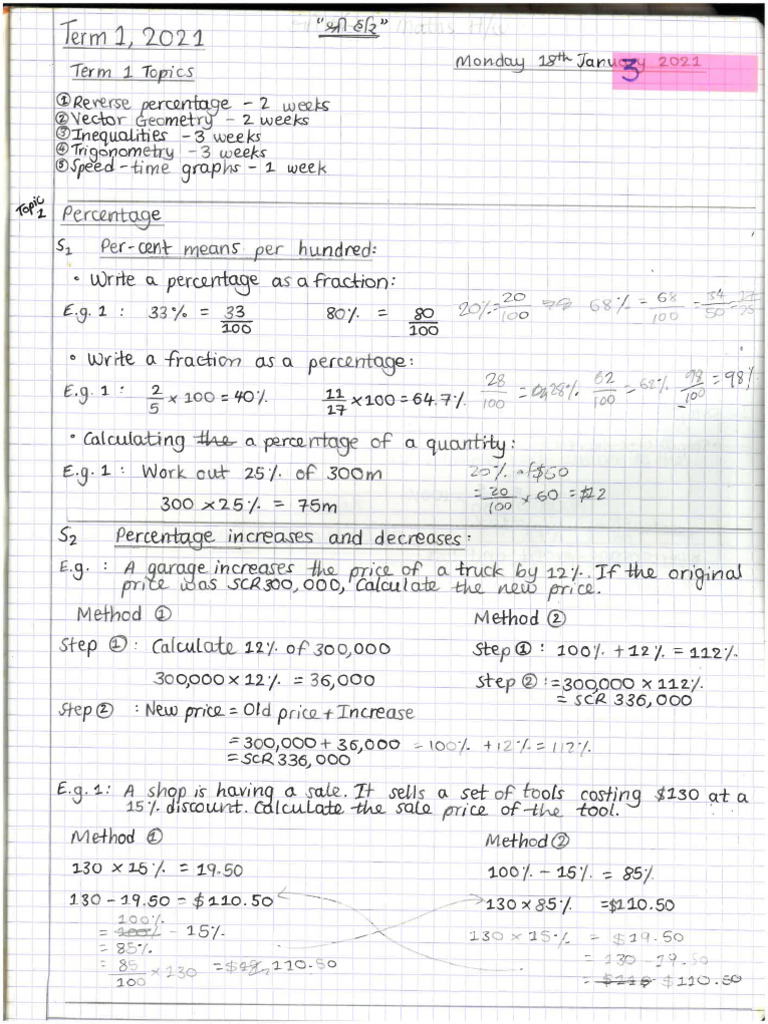 "શ્રી હરિ"
Term 1, 2021
Monday 18th January 2021
3
Term 1 Topics
① Reverse percentage - 2 weeks
② Vector Geometry - 2 weeks
③ Inequalities - 3 weeks
④ Trigonometry - 3 weeks
⑤ Speed-time graphs - 1 week
Topic 1 Percentage
S1 Per-cent means per hundred:
• Write a percentage as a fraction:
E.g. 1 : 33% = 33/100 80% = 80/100 20% = 20/100 68% = 68/100 = 34/50 = 17/25
• Write a fraction as a percentage:
E.g. 1 : 2/5 × 100 = 40% 11/17 × 100 = 64.7% 28/100 = 28% 62/100 = 62% 98/100 = 98%
• Calculating the a percentage of a quantity:
E.g. 1 : Work out 25% of 300m 20% of $60
300 × 25% = 75m = 20/100 × 60 = $12
S2 Percentage increases and decreases:
E.g. : A garage increases the price of a truck by 12%. If the original
price was SCR300,000, Calculate the new price.
Method ① Method ②
Step ① : Calculate 12% of 300,000 Step ① : 100% + 12% = 112%
300,000 × 12% = 36,000 Step ② : = 300,000 × 112%
= SCR 336,000
Step ② : New price = Old price + Increase
= 300,000 + 36,000 = 100% + 12% = 112%
= SCR 336,000
E.g. 1: A shop is having a sale. It sells a set of tools costing $130 at a
15% discount. Calculate the sale price of the tool.
Method ① Method ②
130 × 15% = 19.50 100% - 15% = 85%
130 - 19.50 = $110.50 130 × 85% = $110.50
= 100% - 15% 130 × 15% = $19.50
= 85% = 130 - 19.50
= 85/100 × 130 = 110.50 = $110.50